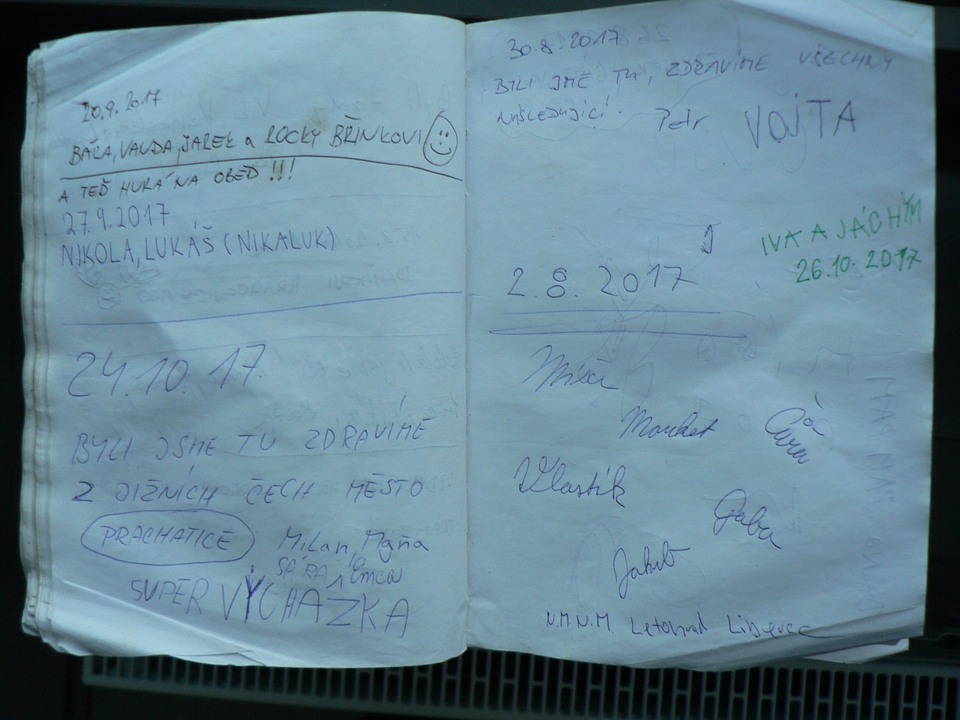 20.9.2017
BÁRA, VANDA, JAREK a ROCKY BŘINKOVI
A TEĎ HURÁ NA OBĚD !!!
27.9.2017
NIKOLA, LUKÁŠ (NIKALUK)
24.10.17.
BYLI JSME TU ZDRAVÍME
Z JIŽNÍCH ČECH MĚSTO
PRACHATICE
Milan, Mája
SÁRA, Šimon
SUPER VYCHÁZKA
30.8 2017
BYLI JME TU, ZDRAVÍME VŠECHNY
NÁSLEDUJÍCÍ.
Petr VOJTA
IVA A JÁCHYM
26.10.2017
2.8.2017
Míša
Market
Vlastík
Gába
Jakub
N.M.N.M. Letohrad Liberec